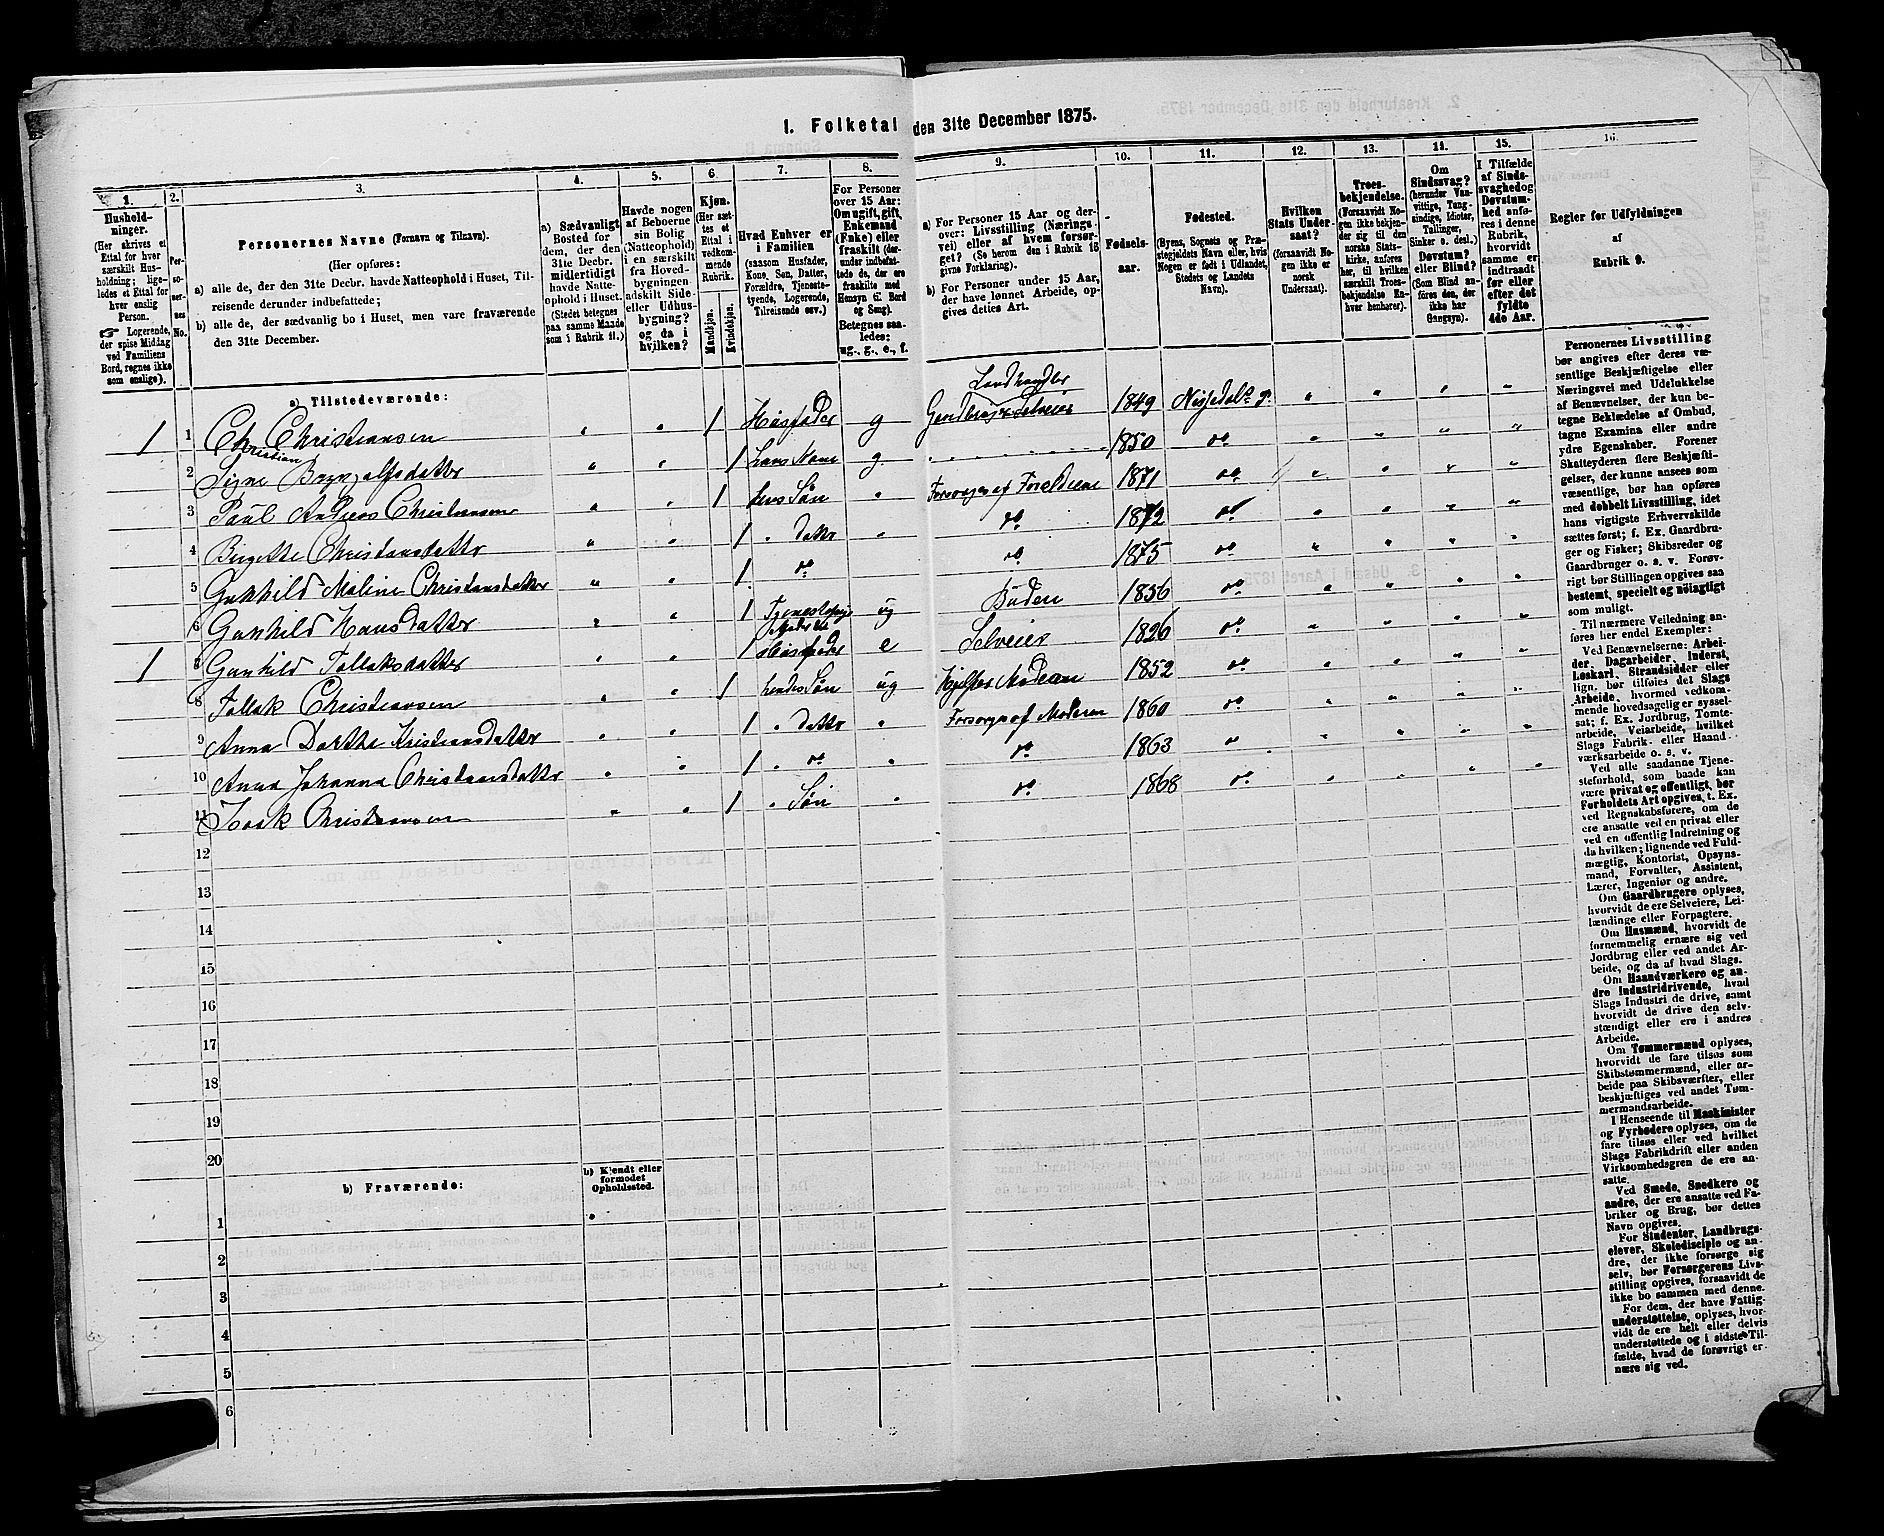 1. Folketal den 31te December 1875.
1.
Hushold-
ninger.
(Her skrives et
Ettal for hver
særskilt Hus-
holdning; lige-
ledes et Ettal for
hver enslig
Person.
☞ Logerende,
der spise Middag
ved Familiens
Bord, regnes ikke
som enslige).
2.
Per-
so-
ner-
nes
No.
3.
Personernes Navne (Fornavn og Tilnavn).
(Her opføres:
a) alle de, der den 31te Decbr. havde Natteophold i Huset, Til-
reisende derunder indbefattede;
b) alle de, der sædvanlig bo i Huset, men vare fraværende
den 31te December.
4.
a) Sædvanligt
Bosted for
dem, der den
31te Decbr.
midlertidigt
havde Natte-
ophold i Huset.
(Stedet betegnes
paa samme Maade
som i Rubrik 11.)
5.
Havde nogen
af Beboerne
sin Bolig
(Natteophold)
i en særskilt
fra Hoved-
bygningen
adskilt Side-
eller Udhus-
bygning?
og da i
hvilken?
6.
Kjøn.
(Her sæt-
tes et
Ettal i
vedkom-
mende
Rubrik.
Mandkjøn.
Kvindekjøn.
7.
Hvad Enhver er
i Familien
(saasom Husfader,
Kone, Søn, Datter,
Forældre, Tjeneste-
tyende, Logerende,
Tilreisende osv.)
8.
For Personer
over 15 Aar:
Om ugift, gift,
Enkemand
(Enke) eller
fraskilt (der-
under indbefat-
tede de, der ere
fraskilte med
Hensyn til Bord
og Seng).
Betegnes saa-
ledes:
ug., g., e., f.
9.
a) For Personer 15 Aar og der-
over: Livsstilling (Nærings-
vei) eller af hvem forsør-
get? (Se herom den i Rubrik 16
givne Forklaring).
b) For Personer under 15 Aar,
der have lønnet Arbeide, op-
gives dettes Art.
10.
Fødsels-
aar.
11.
Fødested.
(Byens, Sognets og Præ-
stegjeldets Navn, eller, hvis
Nogen er født i Udlandet,
Stedets og Landets
Navn).
12.
Hvilken
Stats Under-
saat?
(forsaavidt No-
gen ikke er
norsk
Undersaat).
13.
Troes-
bekjendelse.
(Forsaavidt No-
gen ikke bekjen-
der sig til den
norske Stats-
kirke, anføres
her, til hvilken
særskilt Troes-
bekjendelse En-
hver henhører).
14.
Om
Sindssvag?
(herunder Van-
vittige, Tung-
sindige, Idioter,
Tullinger,
Sinker o. desl.)
Døvstum?
eller Blind?
(Som Blind an-
føres den, der
ikke har
Gangsyn).
15.
I Tilfælde
af Sinds-
svaghed og
Døvstum-
hed anfø-
res i denne
Rubrik,
hvorvidt
samme er
indtraadt
før eller
efter det
fyldte
4de Aar.
16.
Regler for Udfyldningen
af
Rubrik 9.
a) Tilstedeværende:
Landhandler
1 1 Chr Christiansen 1 Husfader g Gaardbruger Selveier 1849 Nissedal
Christian
2 Signe Brynjulfsdatter 1 hans Kone g 1850 do
3 Paul Andreas Christiansen 1 hans Søn Forsørges af Forældrene 1871 do
4 Birgitte Christiansdatter 1 Datter do 1872 do
5 Gunhild Maline Christiansdatter 1 do do 1875 do
6 Gunhild Hansdatter 1 ug Buden 1856 do
1 Gunhild Tallaksdatter 1 e Selveier 1826 do
8 Tallak Christiansen 1 hendes Søn ug Hjelper Moderen 1852 do
9 Anna Dorthe Kristiansdatter 1 datter Forsørges af Moderen 1860 do
10 Anna Johanna Christiansdatter 1 do do 1863 do
11 Isak Christiansen 1 Søn do 1868 do
12
13
14
15
16
17
18
19
20
b) Fraværende:
b) Kjendt eller
formodet
Opholdssted.
1
2
3
4
5
6
Personernes Livsstilling
bør angives efter deres væ-
sentlige Beskjæftigelse eller
Næringsvei med Udelukkelse
af Benævnelser, der kun be-
tegne Beklædelse af Ombud,
tagne Examina eller andre
ydre Egenskaber. Forener
Skatteyderen flere Beskjæfti-
gelser, der kunne ansees som
væsentlige, bør han opføres
med dobbelt Livsstilling, idet
hans vigtigste Erhvervskilde
sættes først; f. Ex. Gaardbru-
ger og Fisker; Skibsreder og
Gaardbruger o. s. v. Forøv-
rigt bør Stillingen opgives saa
bestemt, specielt og nøiagtigt
som muligt.
Til nærmere Veiledning an-
føres her endel Exempler:
Ved Benævnelserne: Arbei-
der, Dagarbeider, Inderst,
Løskarl, Strandsidder eller
lign. bør tilføies det Slags
Arbeide, hvormed vedkom-
mende hovedsagelig er syssel-
sat; f. Ex. Jordbrug, Tomte-
arbeide, Veiarbeide, hvilket
Slags Fabrik- eller Haand-
værksarbeide o. s. v.
Ved alle saadanne Tjene-
steforhold, som baade kan
være privat og offentligt, bør
Forholdets Art opgives, t. Ex.
ved Regnskabsførere, om de
ere ansatte ved en privat eller
ved en offentlig Indretning og
da hvilken; lignende ved Fuld-
mægtig, Kontorist, Opsyns-
mand, Forvalter, Assistent,
Lærer, Ingeniør og andre.
Om Gaardbrugere oplyses,
hvorvidt de ere Selveiere, Lei-
lændinge eller Forpagtere.
Om Husmænd, hvorvidt de
fornemmelig ernære sig ved
Jordbrug eller ved andet Ar-
beide, og da af hvad Slags.
Om Haandværkere og an-
dre Industridrivende, hvad
Slags Industri de drive, samt
hvorvidt de drive den selv-
stændigt eller ere i andres
Arbeide.
Om Tømmermænd oplyses,
hvorvidt de fare tilsøs som
Skibstømmermænd, eller ar-
beide paa Skibsværfter, eller
beskjæftiges ved andet Tøm-
mermandsarbeide.
I Henseende til Maskinister
og Fyrbødere oplyses, om de
fare tilsøs eller ved hvilket
Slags Fabrikdrift eller anden
Virksomhedsgren de ere an-
satte.
Ved Smede, Snedkere og
andre, der ere ansatte ved Fa-
briker og Brug, bør dettes
Navn opgives.
For Studenter, Landbrugs-
elever, Skoledisciple og an-
dre, der ikke forsørge sig
selv, bør Forsørgerens Livs-
stilling opgives, forsaavidt de
ikke bo sammen med denne.
For dem, der have Fattig-
understøttelse, oplyses, hvor-
vidt de ere helt eller delvis
understøttede og i sidste Til-
fælde, hvad de forøvrigt er-
nære sig ved.